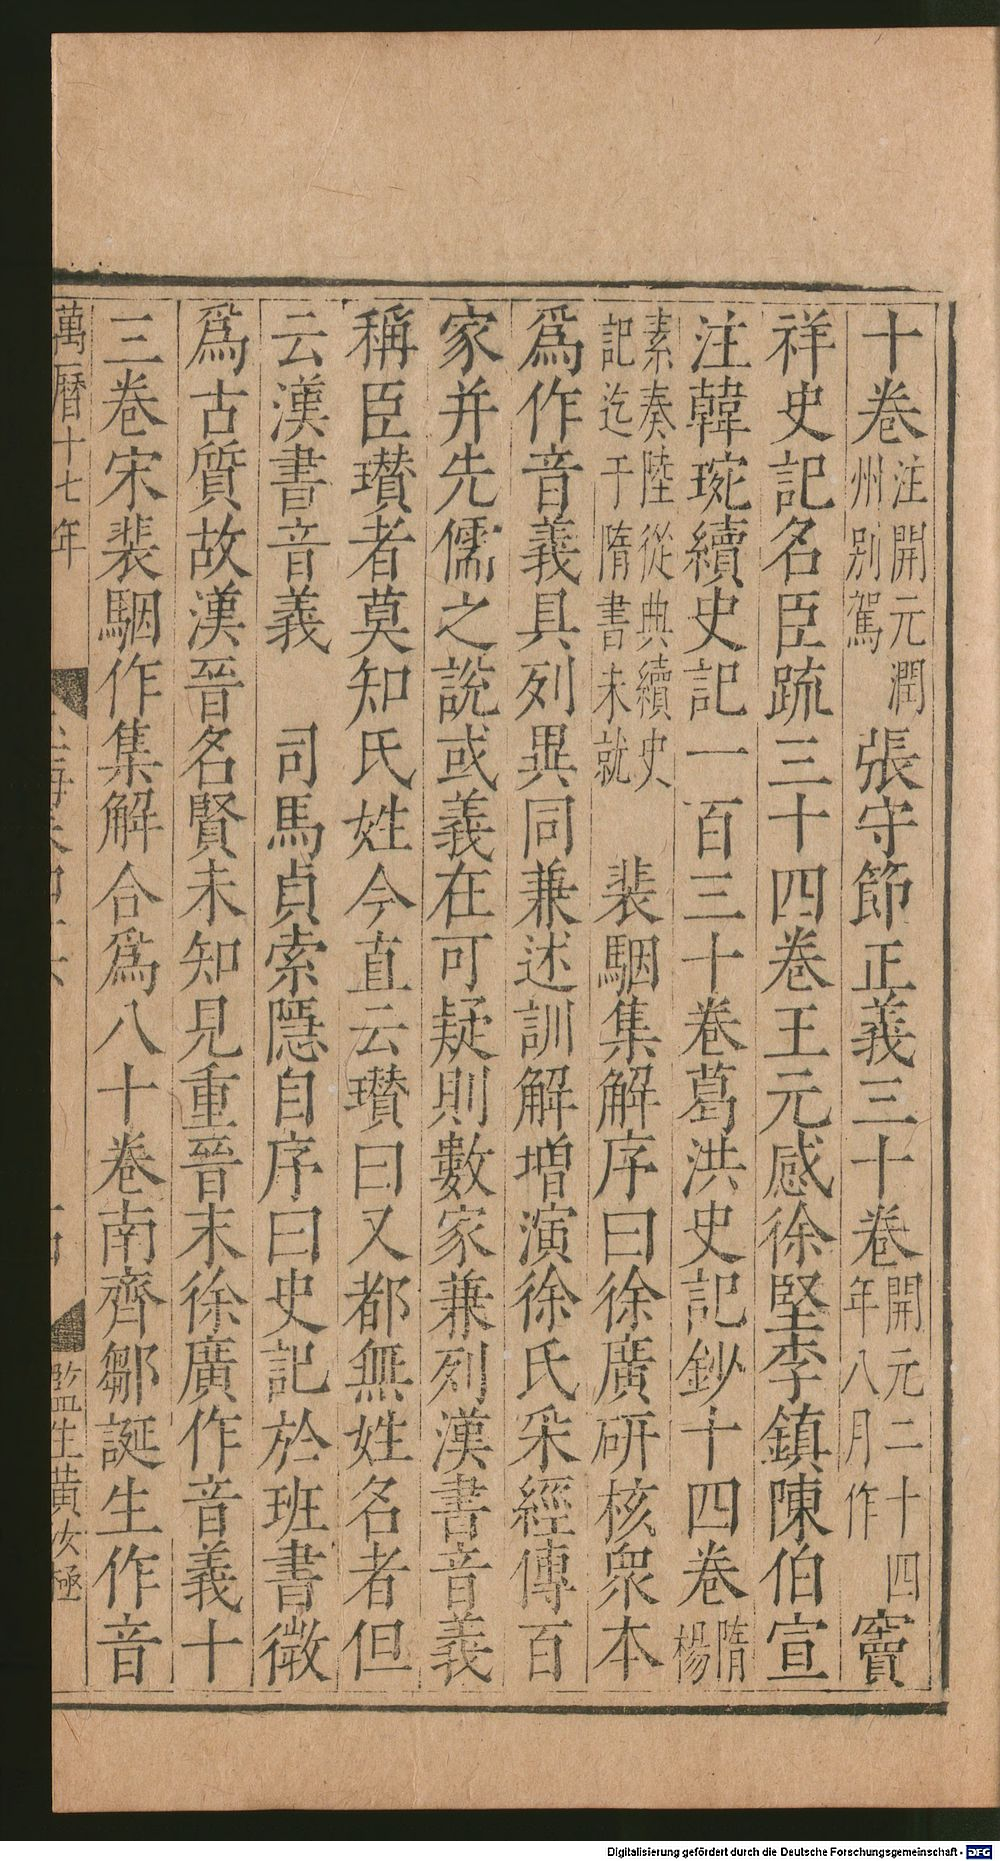 十卷注開元潤州別駕張守節正義三十卷開元二十四年八月作竇
祥史記名臣疏三十四卷王元感徐堅李鎮陳伯宣
注韓琬續史記一百三十卷葛洪史記鈔十四卷隋楊
素奏陸從典續史記迄于隋書未就　裴駰集解序曰徐廣硏核衆本
爲作音義具列異同兼述訓解增演徐氏采經傳百
家并先儒之說或義在可疑則數家兼列漢書音義
稱臣瓚者莫知氏姓今直云瓚曰又都無姓名者但
云漢書音義　司馬貞索隱自序曰史記於班書微
爲古質故漢晉名賢未知見重晉末徐廣作音義十
三卷宋裴駰作集解合爲八十卷南齊鄒誕生作音
萬曆十七年
監生黃汝極
Digitalisierung gefördert durch die Deutsche Forschungsgemeinschaft - DFG